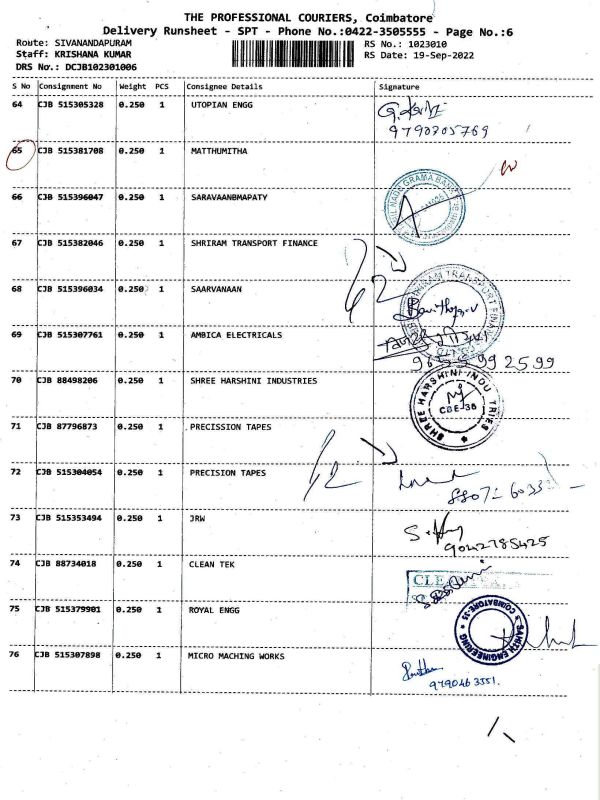 THE PROFESSIONAL COURIERS, Coimbatore
Delivery Runsheet - SPT - Phone No.:0422-3505555 - Page No.:6
Route: SIVANANDAPURAM
RS No.: 1023010
Staff: KRISHANA KUMAR
RS Date: 19-Sep-2022
DRS No.: DCJB102301006
S No Consignment No Weight PCS Consignee Details Signature
64 CJB 515305328 0.250 1 UTOPIAN ENGG
9790305769
65 CJB 515381708 0.250 1 MATTHUMITHA
66 CJB 515396047 0.250 1 SARAVAANBMAPATY
GRAMA BANK
67 CJB 515382046 0.250 1 SHRIRAM TRANSPORT FINANCE
68 CJB 515396034 0.250 1 SAARVANAAN
SHRIRAM TRANSPORT FINANCE
69 CJB 515307761 0.250 1 AMBICA ELECTRICALS
9655992599
70 CJB 88498206 0.250 1 SHREE HARSHINI INDUSTRIES
SHREE HARSHINI INDUSTRIES
CBE-35
71 CJB 87796873 0.250 1 PRECISSION TAPES
72 CJB 515304054 0.250 1 PRECISION TAPES
73 CJB 515353494 0.250 1 JRW
9042785425
74 CJB 88734018 0.250 1 CLEAN TEK
75 CJB 515379901 0.250 1 ROYAL ENGG
ENGINEERING
COIMBATORE-35
76 CJB 515307898 0.250 1 MICRO MACHING WORKS
9790463551.